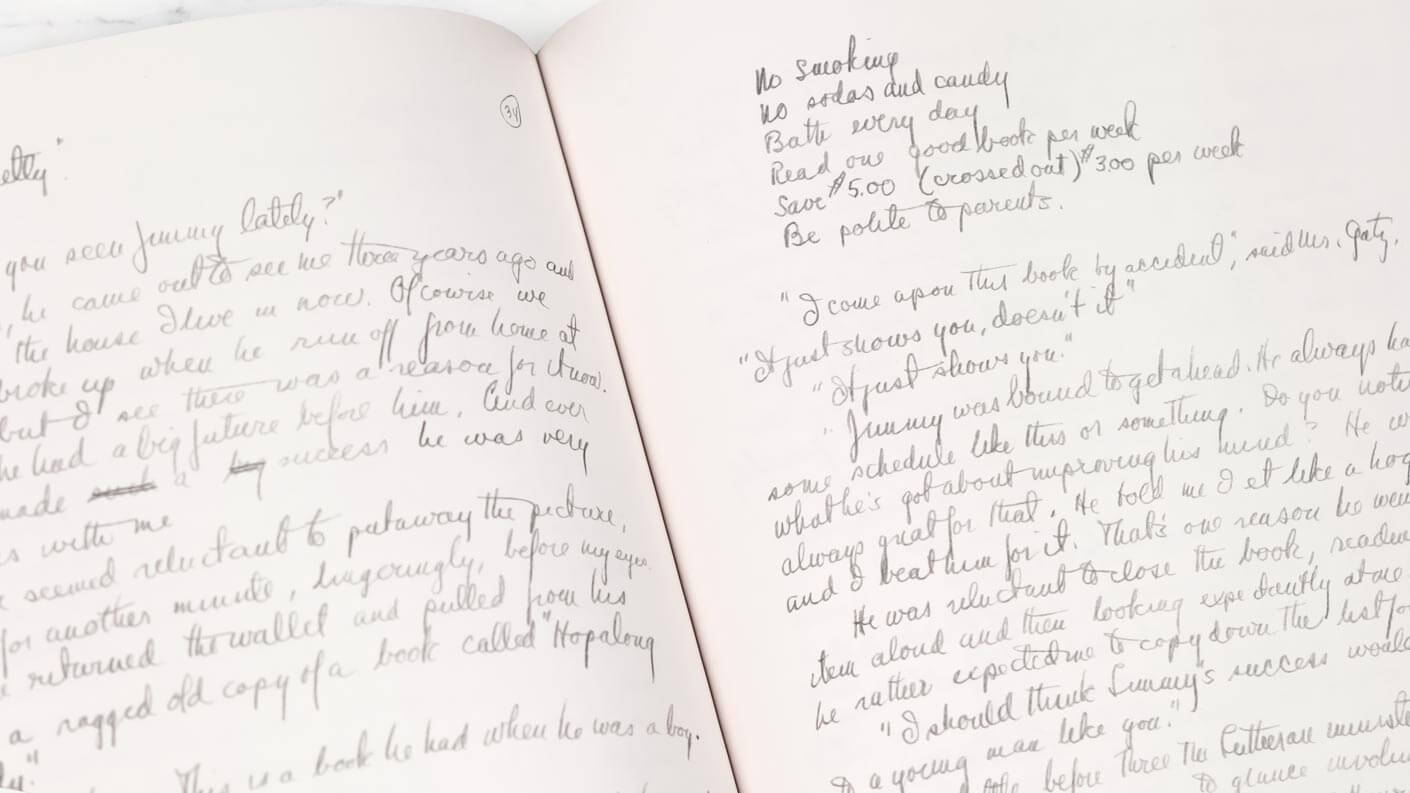 34
etty."
you seen Jimmy lately?"
, he came out to see me three years ago and
the house I live in now. Of course we
broke up when he run off from home at
but I see there was a reason for it now.
he had a big future before him. And ever
made a success he was very
s with me
seemed reluctant to put away the picture,
for another minute, lingeringly, before my eyes.
returned the wallet and pulled from his
a ragged old copy of a book called "Hopalong
."
This is a book he had when he was a boy.
No smoking
No sodas and candy
Bath every day
Read one good book per week
Save $5.00 (crossed out) $3.00 per week
Be polite to parents.
"I come apon this book by accident", said Mr. Gatz.
"It just shows you, doesn't it"
"It just shows you."
"Jimmy was bound to get ahead. He always ha
some schedule like this or something. Do you noti
what he's got about improving his mind? He w
always great for that. He told me I et like a hog
and I beat him for it. That's one reason he wen
He was reluctant to close the book, readin
item aloud and then looking expectantly at me.
he rather expected me to copy down the list fo
"I should think Jimmy's success would
to a young man like you."
before three the Lutheran ministe
to glance involu